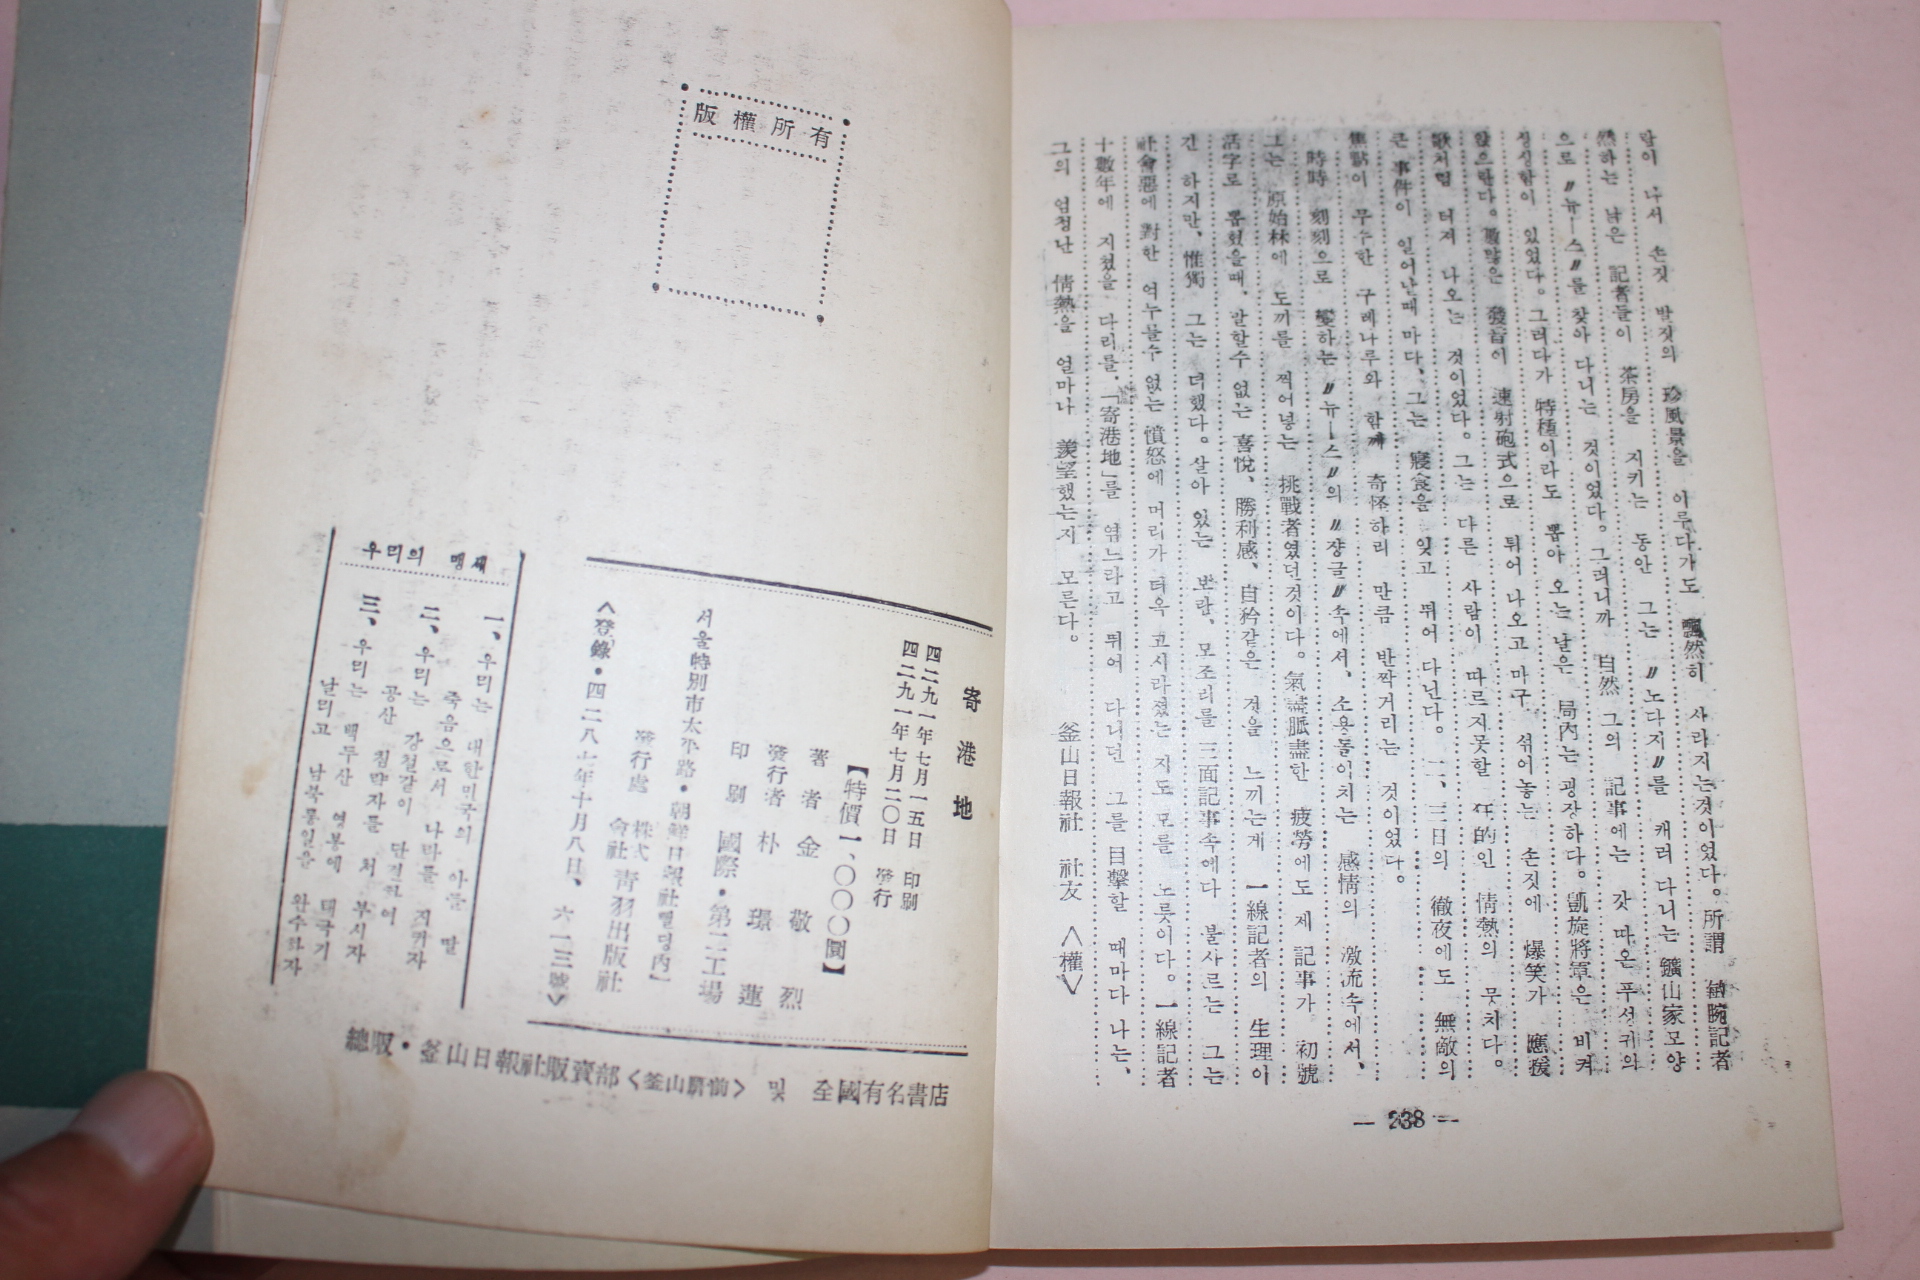 람이 나서 손짓 발짓의 珍風景을 이루다가도 飄然히 사라지는것이었다。所謂 敏腕記者
然하는 낡은 記者들이 茶房을 지키는 동안 그는 〃노다지〃를 캐러 다니는 鑛山家모양
으로 〃뉴ー스〃를 찾아 다니는 것이었다。그러니까 自然 그의 記事에는 갓 따온 푸성귀와
싱싱함이 있었다。그러다가 特種이라도 뽑아 오는 날은 局內는 굉장하다。凱旋將軍은 비켜
앉으란다。 發音이 速射砲式으로 튀어 나오고 마구 섞어놓는 손짓에 爆笑가 應援
歌처럼 터져 나오는 것이었다。그는 다른 사람이 따르지못할 狂的인 情熱의 뭇치다。
큰 事件이 일어날때 마다、그는 寢食을 잊고 뛰어 다닌다。二、三日의 徹夜에도 無敵의
焦點이 무수한 구레나루와 함께 奇怪하리 만큼 반짝거리는 것이었다。
時時 刻刻으로 變하는 〃뉴ー스〃의 〃쟝글〃속에서、소용돌이치는 感情의 激流속에서、
그는 原始林에 도끼를 찍어넣는 挑戰者였던것이다。氣盡脈盡한 疲勞에도 제 記事가 初號
活字로 뽑혔을때、말할수 없는 喜悅、勝利感、自矜같은 것을 느끼는게 一線記者의 生理이
간 하지만、惟獨 그는 더했다。살아 있는 보람、모조리를 三面記事속에다 불사르는 그는
社會惡에 對한 억누를수 없는 憤怒에 머리가 더욱 고시라졌는 지도 모를 노릇이다。一線記者
十數年에 지쳤을 다리를、「寄港地」를 엮느라고 뛰어 다니던 그를 目擊할 때마다 나는、
그의 엄청난 情熱을 얼마나 羨望했는지 모른다。
釜山日報社 社友 <權>
— 238 —
版權所有
寄港地
四二九一年七月一五日 印刷
四二九一年七月二〇日 發行
【特價一、〇〇〇圜】
著者 金敬烈
發行者 朴璟蓮
印刷 國際・第二工場
서울特別市太平路・朝鮮日報社삘딩內
發行處 株式會社 靑羽出版社
<登錄・四二八七年十月八日、六一三號>
우리의 맹세
一、우리는 대한민국의 아들 딸
죽음으로서 나라를 지키자
二、우리는 강철같이 단결하여
공산 침략자를 처 부시자
三、우리는 백두산 영봉에 태극기
날리고 남북통일을 완수하자
總販・釜山日報社販賣部<釜山驛前> 및 全國有名書店